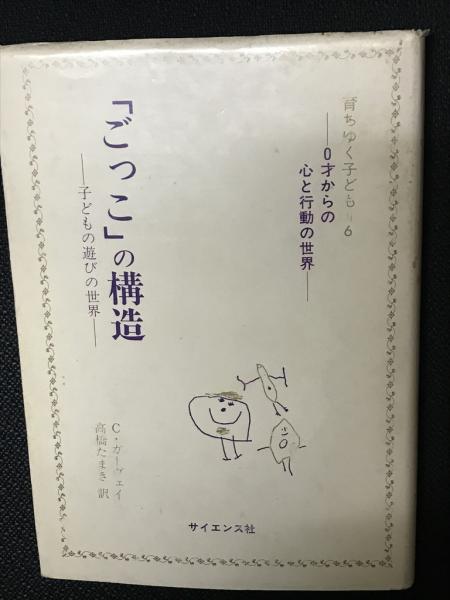 育ちゆく子ども 6
—0才からの
心と行動の世界—
「ごっこ」の構造
—子どもの遊びの世界—
C・ガーヴェイ
高橋たまき 訳
サイエンス社